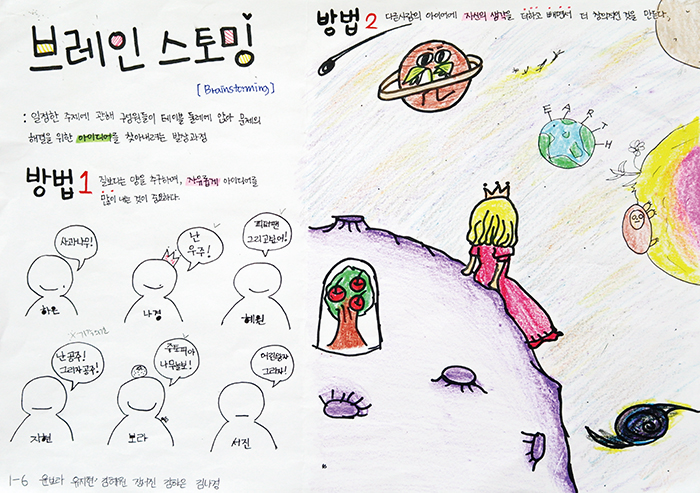 브레인 스토밍
[Brainstorming]
: 일정한 주제에 관해 구성원들이 테이블 둘레에 앉아 문제의
해결을 위한 아이디어를 찾아내려는 발상과정
방법1 질보다는 양을 추구하며, 자유롭게 아이디어를
많이 내는 것이 중요하다.
사과나무!
하은
난
우주!
나경
피터팬
그리고싶어!
혜원
난 공주!
그리자 공주!
지현
주토피아
나무늘보!
보라
어린왕자
그리자!
서진
1-6 윤보라 유지현 김혜원 김서진 김하은 김나경
방법2 다른사람의 아이디어에 자신의 생각을 더하고 빼면서 더 창의적인 것을 만든다.
EARTH